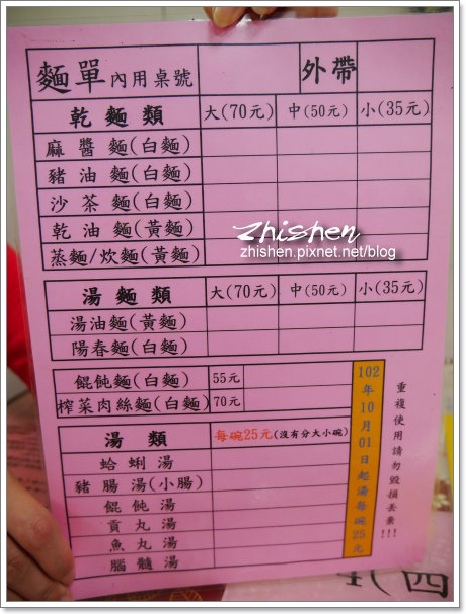 麵單 內用桌號 外帶
乾麵類 大(70元) 中(50元) 小(35元)
麻醬麵(白麵)
豬油麵(白麵)
沙茶麵(白麵)
乾油麵(黃麵)
蒸麵/炊麵(黃麵)
Zhishen
zhishen.pixnet.net/blog
湯麵類 大(70元) 中(50元) 小(35元)
湯油麵(黃麵)
陽春麵(白麵)
餛飩麵(白麵) 55元
榨菜肉絲麵(白麵) 70元
湯類 每碗25元(沒有分大小碗)
蛤蜊湯
豬腸湯(小腸)
餛飩湯
貢丸湯
魚丸湯
腦髓湯
102年10月01日起湯每碗25元
重複使用請勿毀損丟棄!!!